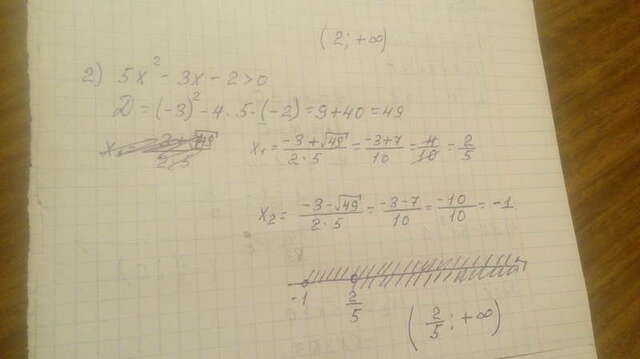 (2; +∞)
2) 5x² - 3x - 2 > 0
D = (-3)² - 4 · 5 · (-2) = 9 + 40 = 49
x₁ = (-3 + √49)/(2 · 5) = (-3 + 7)/10 = 4/10 = 2/5
x₂ = (-3 - √49)/(2 · 5) = (-3 - 7)/10 = -10/10 = -1
-1 2/5
(2/5; +∞)